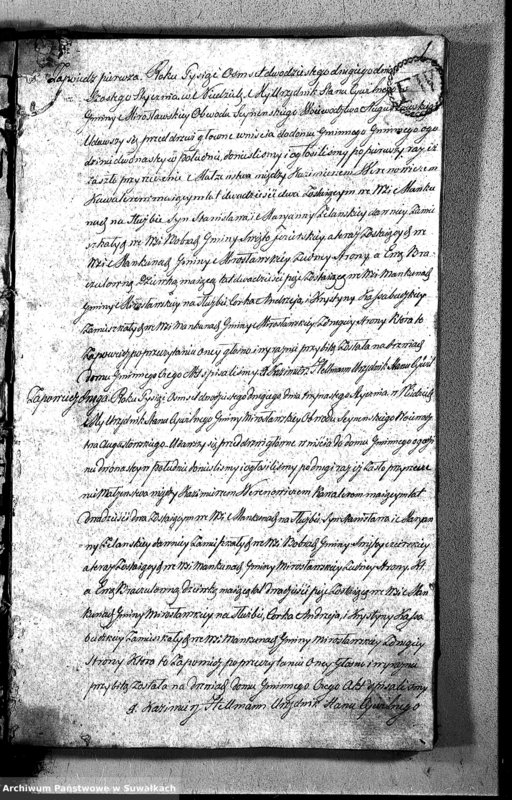 1
Zapowiedz pierwsza. Roku Tysiąc Osmset dwodziestego drugiego dnia
Szostego Stycznia w Niedzielę My Urzędnik Stanu Cywilnego
Gminy Mirosławskiy Obwodu Seynenskiego Woiewodztwa Augustowskiego
Udawszy się przed drzwi głowne wniscia do domu Gminnego Gminnego o go
dzinie dwonastey w południe, donieslismy i ogłosilismy po pierwszy raz iż
zaszło przyrzeczenie Małżenstwa między Kazimierzem Werenowiczem
Kawalerem maiącym lat dwadziescia dwa Zostaiącym we Wsi Manku
nach na służbie Syn Stanisława i Maryanny
szkałych we Wsi Gminy a teraz Zostaiący we
Wsi Mankunach Gminy Mirosławskiy z iedney strony. a Ewą Bra
czulowną dzienką maiącą lat dwadziescia pięc Zostaiącą we Wsi Mankunach
Gminy Mirosławskiy na służbie Corka Andrzeia i Krystyny
Zamieszkałych we Wsi Mankunach Gminy Mirosławskiy z drugiy Strony Ktora to
Zapowiedz po przeczytaniu oney głosno i wyrazniе przybita Została na drzwiach
domu Gminnego Czego Akt spisalismy Kazimierz Hellmann Urzędnik Stanu Cywil
Zapowiedz druga Roku Tysiąc Osmset dwodziestego drugiego dnia trzynastego Stycznia w Niedzielę
My Urzędnik Stanu Cywilnego Gminy Mirosławskiy Obwodu Seynenskiego Woiewodz
twa Augustowskiego. Udawszy się przed drzwi głowne wniscia do domu Gminnego o godzi
nie dwonastey w południe donieslismy i ogłosilismy po drugi raz iż Zaszło przyrzecze
nie Małżenstwa między Kazimierzem Werenowiczem Kawalerem maiącym lat
dwadziescia dwa Zostaiącym we Wsi Mankunach na służbie, Syn Stanisława i Maryan
ny Zamieszkałych we Wsi Gminy
a teraz Zostaiący we Wsi Mankunach Gminy Mirosławskiy z iedney strony.
a Ewą Braczulowną dzienką maiącą lat dwadziescia pięc Zostaiącą we Wsi Man
kunach Gminy Mirosławskiy na służbie, Corka Andrzeia i Krystyny
Zamieszkałych we Wsi Mankunach Gminy Mirosławskiy z drugiy
Strony Ktora to Zapowiedz po przeczytaniu Oney Głosno i wyraznie
przybita Została na drzwiach domu Gminnego Czego Akt spisalismy
Kazimierz Hellmann Urzędnik Stanu Cywilnego
Archiwum Państwowe w Suwałkach